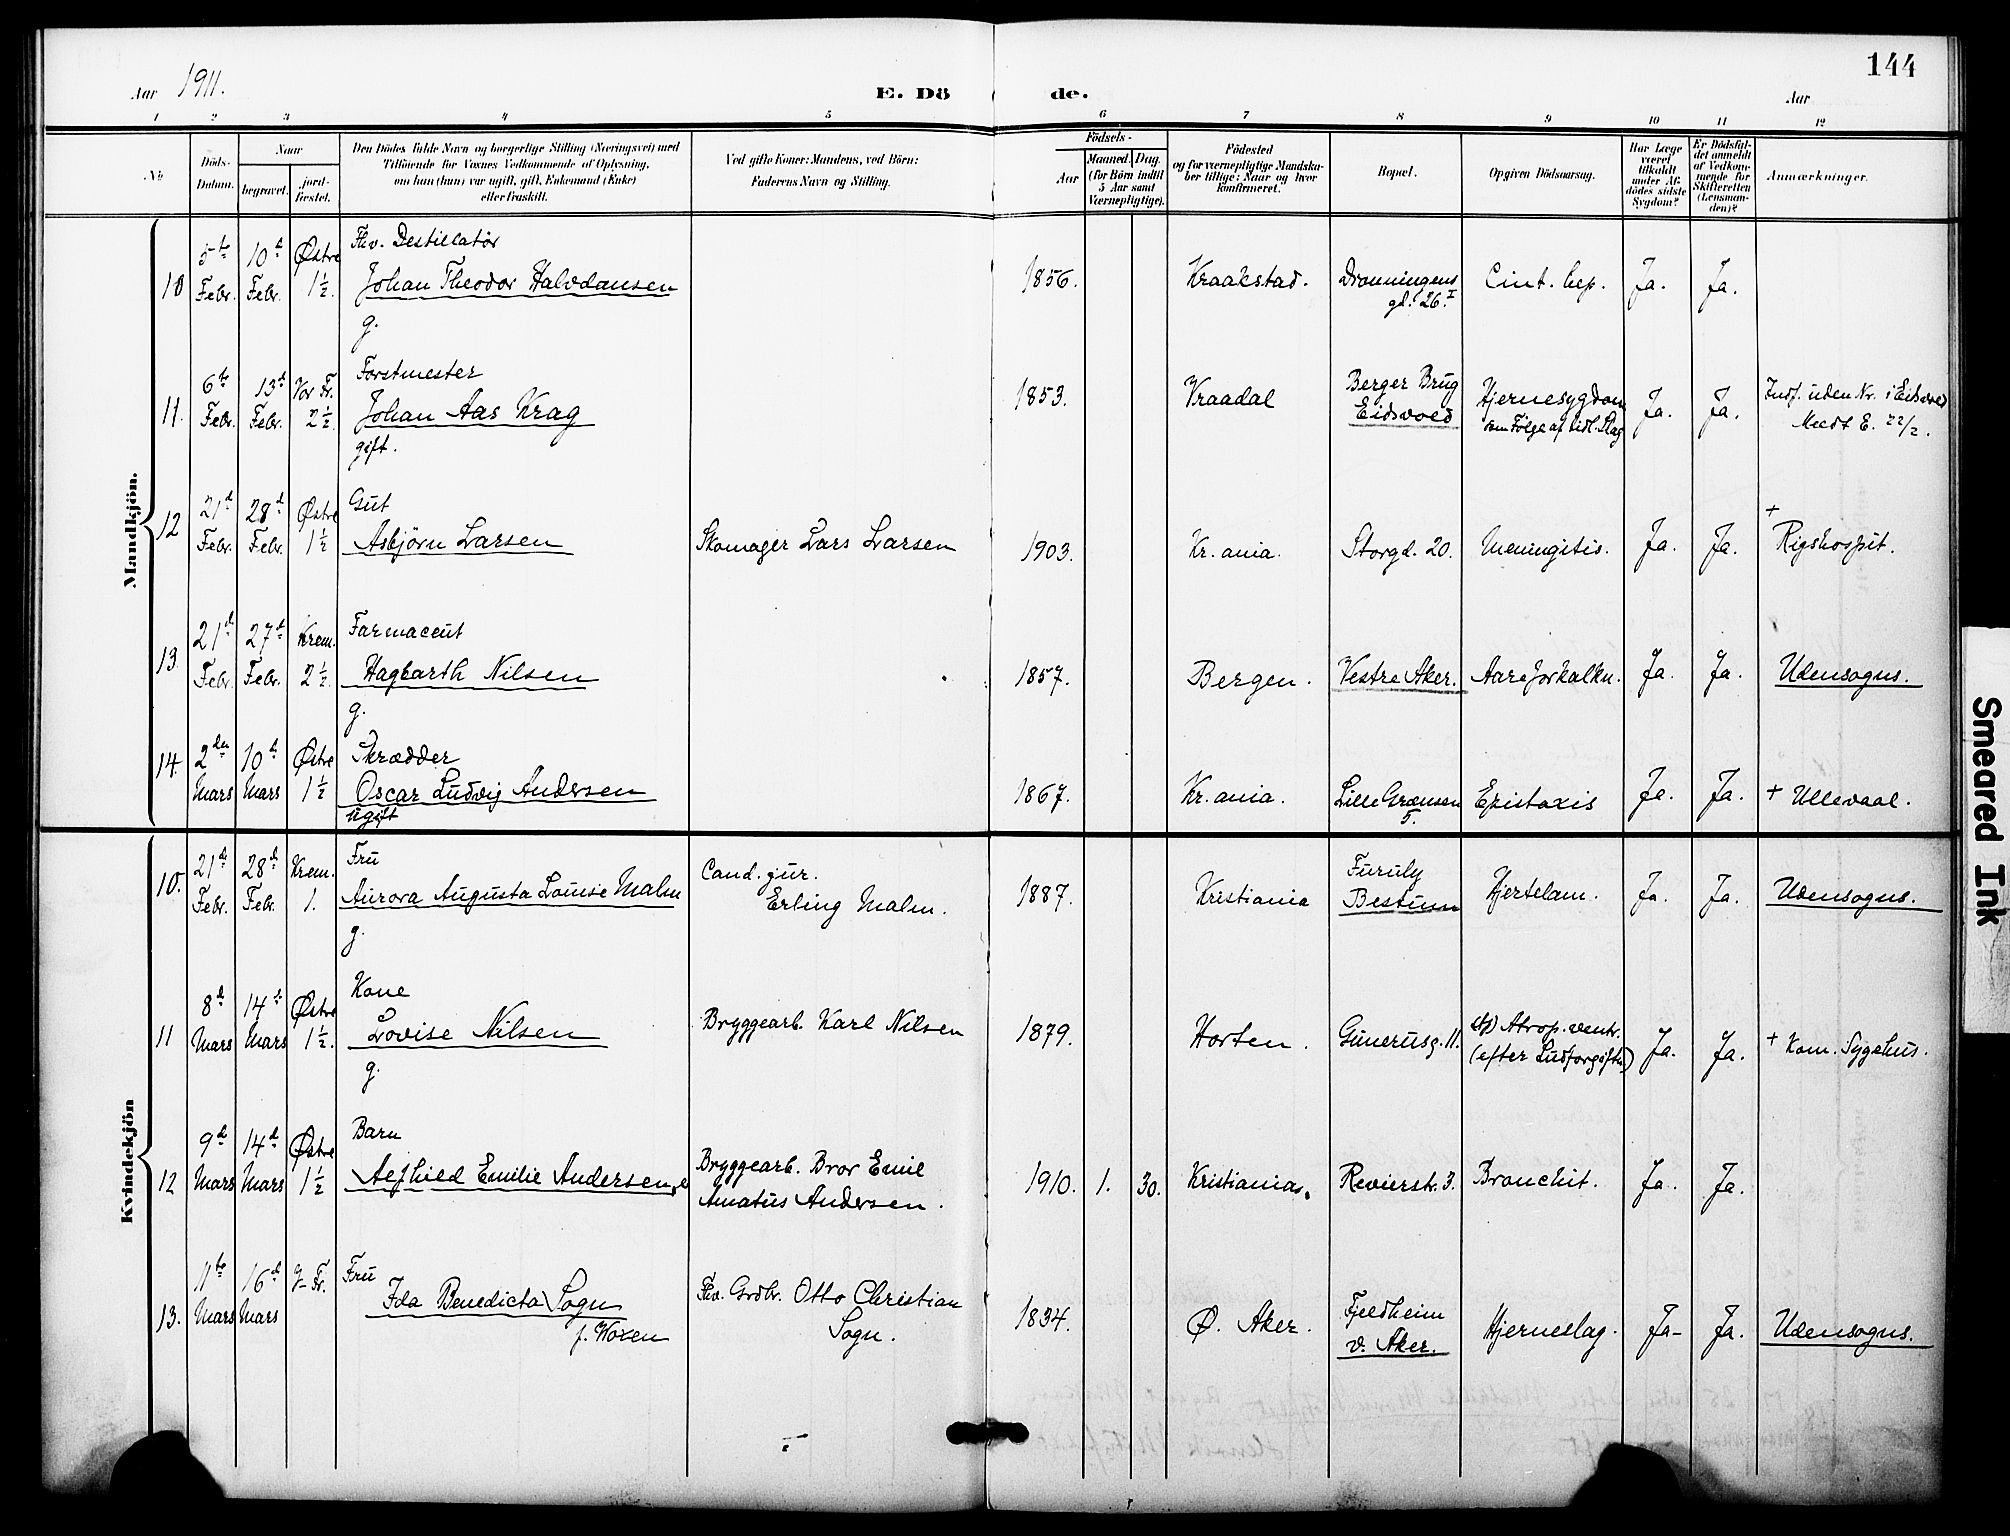 144
Aar 1911. E. Dö de. Aar
1 2 3 4 5 6 7 8 9 10 11 12
No.
Döds-Datum.
Naar
begravet.
jord-fæstet.
Den Dödes fulde Navn og borgerlige Stilling (Næringsvei) med
Tilföiende for Voxnes Vedkommende af Oplysning,
om han (hun) var ugift, gift, Enkemand (Enke)
eller fraskilt.
Ved gifte Koner: Mandens, ved Börn:
Faderens Navn og Stilling.
Födsels-
Aar
Maaned. Dag.
(for Börn indtil
5 Aar samt
Værnepligtige).
Födested
og for værnepligtige Mandska-
ber tillige: Naar og hvor
konfirmeret.
Bopæl.
Opgiven Dödsaarsag.
Har Læge
været
tilkaldt
under Af-
dödes sidste
Sygdom?
Er Dödsfal-
det anmeldt
af Vedkom-
mende for
Skifteretten
(Lensman-
den)?
Anmærkninger.
Mandkjön.
5te 10d Østre Fhv. Destillatör
10 Febr. Febr. 1½. Johan Theodor Halvdansen 1856. Kraakstad. Dronningens Ja. Ja.
gd. 26.I
g.
6te 13d Vor Fr. Forstmester Berger Brug Hjernesygdom Indf. uden Nr. i Eidsvold
11. Febr. Febr. 2½. Johan Aas Krag 1853. Vraadal Eidsvold som Følge af tidl. Slag Ja. Ja. Medt E. 22/2.
gift.
21d 28d Østre Gut +
12 Febr. Febr. 1½ Asbjörn Larsen Skomager Lars Larsen 1903. Kr.ania. Storgd. 20. Meningitis. Ja. Ja. Rigshospit.
21d 27d Krem. Farmaceut
13. Febr. Febr. 2½. Hagbarth Nilsen 1857. Bergen. Vestre Aker. Aareforkalkn. Ja. Ja. Udensogns.
g.
14. 2den 10d Østre Skrædder
Mars Mars 1½ Oscar Ludvig Andersen 1867. Kr.ania. Lille Grænsen Epistaxis Ja. Ja. + Ullevaal.
5.
ugift
Kvindekjön
10. 21d 28d Krem. Fru Cand. jur. Furuly
Febr. Febr. 1. Aurora Augusta Louise Malm Erling Malm. 1887. Kristiania Bestum Hjertelam. Ja. Ja. Udensogns.
g.
8d 14d Østre Kone
11 Mars Mars 1½. Lovise Nilsen Bryggearb. Karl Nilsen 1879. Horten. Gunerusg. 11. Atrop. ventr. Ja. Ja. + Kom. Sygehus.
(efter Ludforgiftn.)
g.
9d 14d Østre Barn
12 Mars Mars 1½ Emilie Andersen. Bryggearb. Bror Emil 1910. 1. 30. Kristiania. Revierstr. 3. Bronchit. Ja. Ja.
Amatus Andersen.
11te 16d Fr. Fru
13. Mars Mars Ida Benedicta Sogn Fhv. Grdbr. Otto Christian 1834. Ø. Aker. Fjeldheim Hjerneslag. Ja- Ja. Udensogns.
f. Voxen Sogn. V. Aker.
Smeared Ink